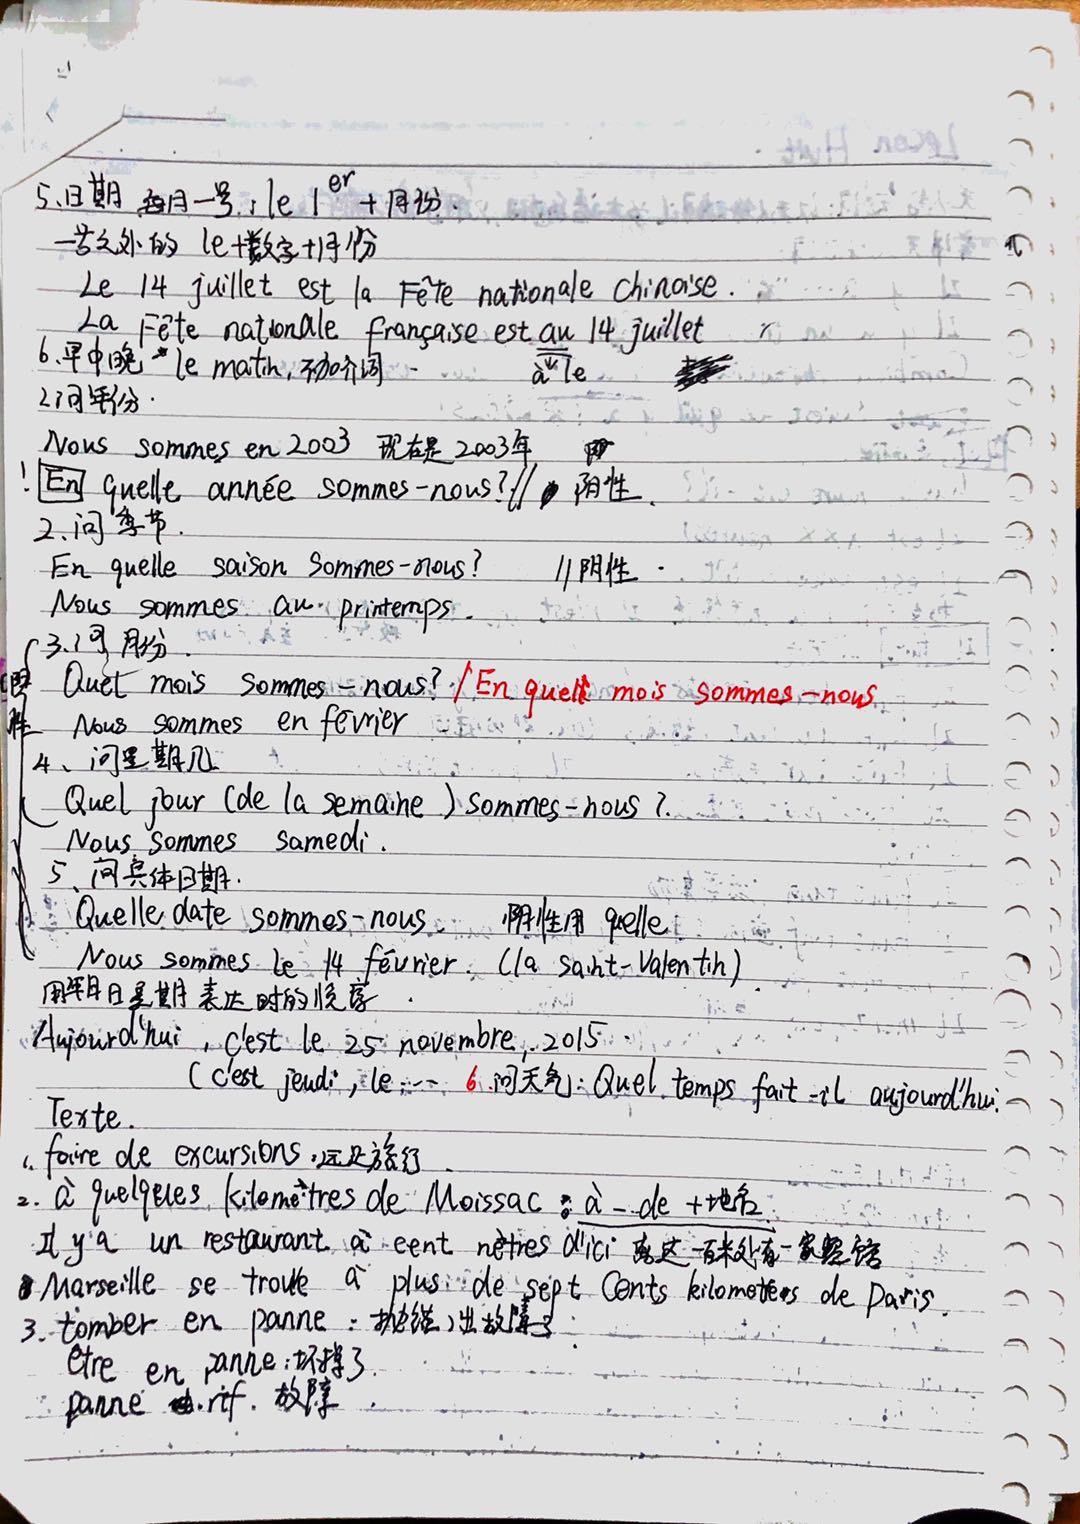 5、日期 每月一号：le 1er + 月份.
一号之外的 le+数字+月份
Le 14 juillet est la Fête nationale chinoise.
La Fête nationale française est au 14 juillet
6.早中晚 le matin, 不加介词
à le
1.问年份.
Nous sommes en 2003 现在是2003年
! En quelle année sommes-nous? // 阴性.
2.问季节.
En quelle saison sommes-nous? //阴性.
Nous sommes au printemps.
3.问月份.
Quel mois sommes-nous? / En quel mois sommes-nous
Nous sommes en février
4、问星期几
Quel jour (de la semaine) sommes-nous?.
Nous sommes samedi.
5、问具体日期.
Quelle date sommes-nous. 阴性用 quelle.
Nous sommes le 14 février. (la saint-Valentin)
用年月日星期表达时的顺序.
Aujourd'hui, c'est le 25 novembre, 2015.
(c'est jeudi, le... 6.问天气: Quel temps fait-il aujourd'hui.
Texte.
1. faire de excursions.远足旅行.
2. à quelqeles kilomètres de Moissac : à - de +地名
Il y a un restaurant à cent nètres d'ici 离这一百米处有一家餐馆
Marseille se trouve à plus de sept cents kilometers de Paris.
3. tomber en panne : 抛锚,出故障了
être en panne:坏掉了
panne n.f. 故障.